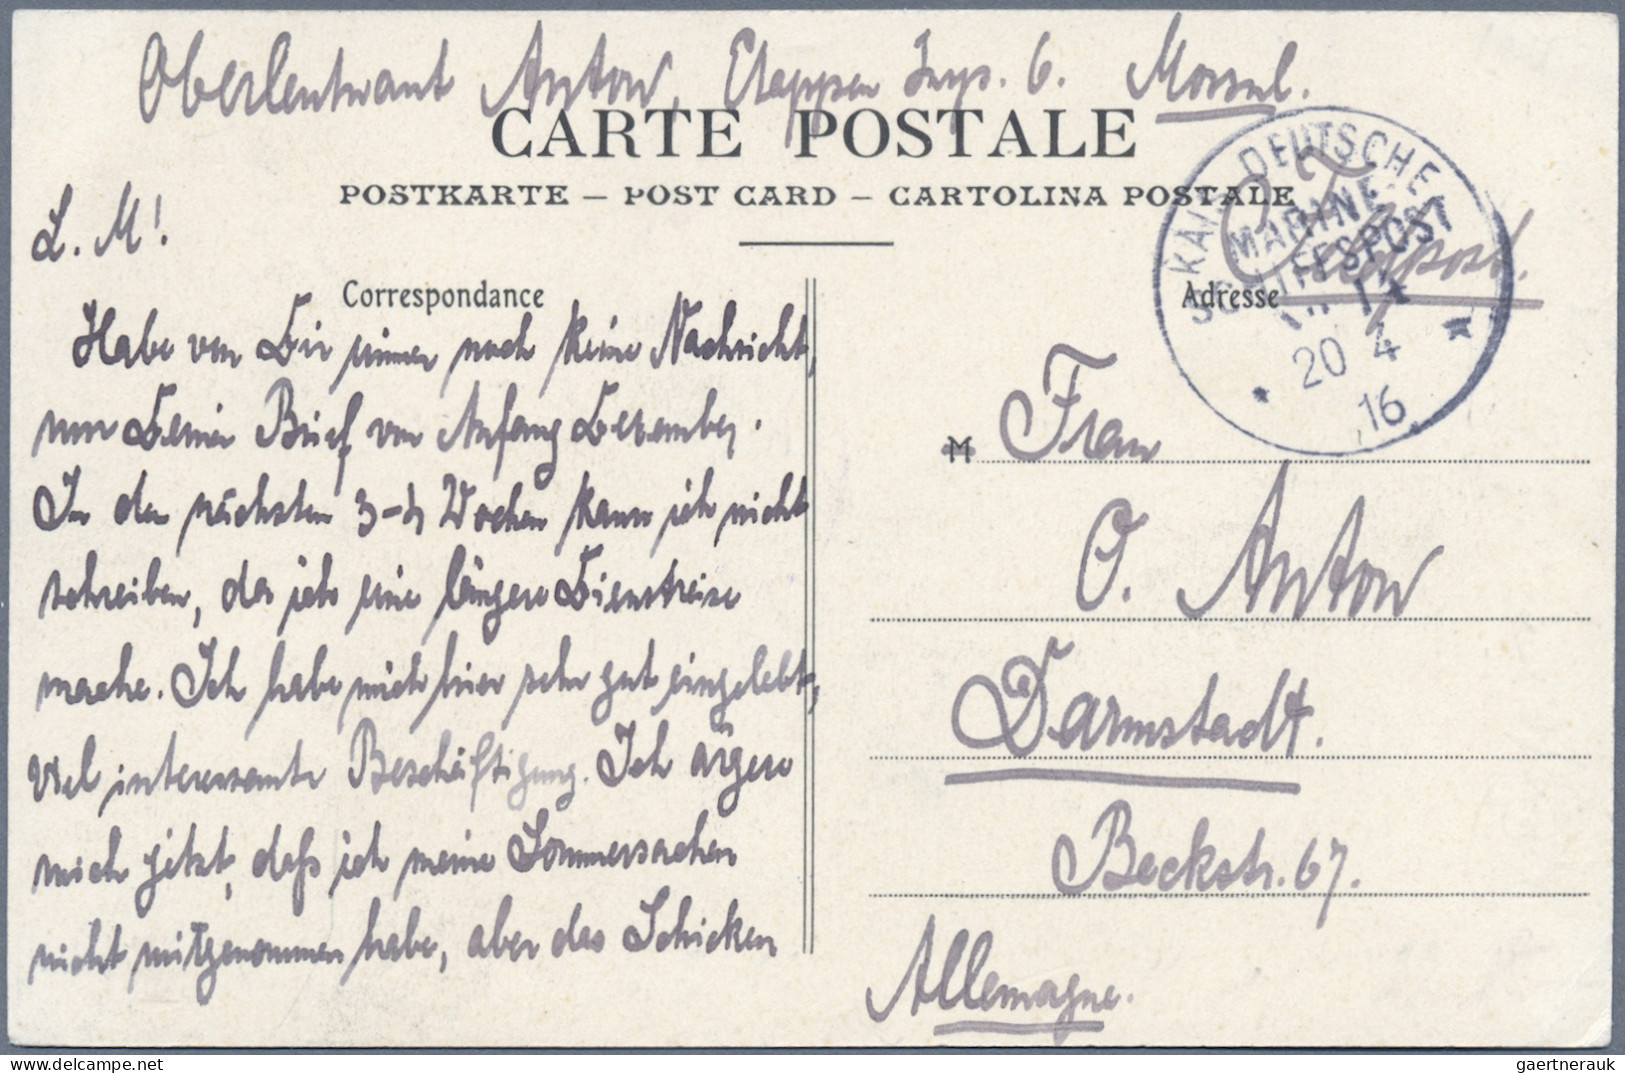 Oberleutnant Anton, Etappen Insp. 6. Mossul.
CARTE POSTALE
POSTKARTE – POST CARD – CARTOLINA POSTALE
L. M!
Correspondance
Habe von Dir immer noch keine Nachricht,
nur Deinen Brief von Anfang Dezember.
In den nächsten 3-4 Wochen kann ich nicht
schreiben, da ich eine längere Dienstreise
mache. Ich habe mich hier sehr gut eingelebt,
viel interessante Beschäftigung. Ich ärgere
mich jetzt, daß ich meine Sommersachen
nicht mitgenommen habe, aber das Schicken
KAIS. DEUTSCHE
MARINE-
SCHIFFSPOST
No 14
20 4
16
Feldpost.
Adresse
M Frau
O. Anton
Darmstadt.
Beckstr. 67.
Allemagne.
gaertnerauk